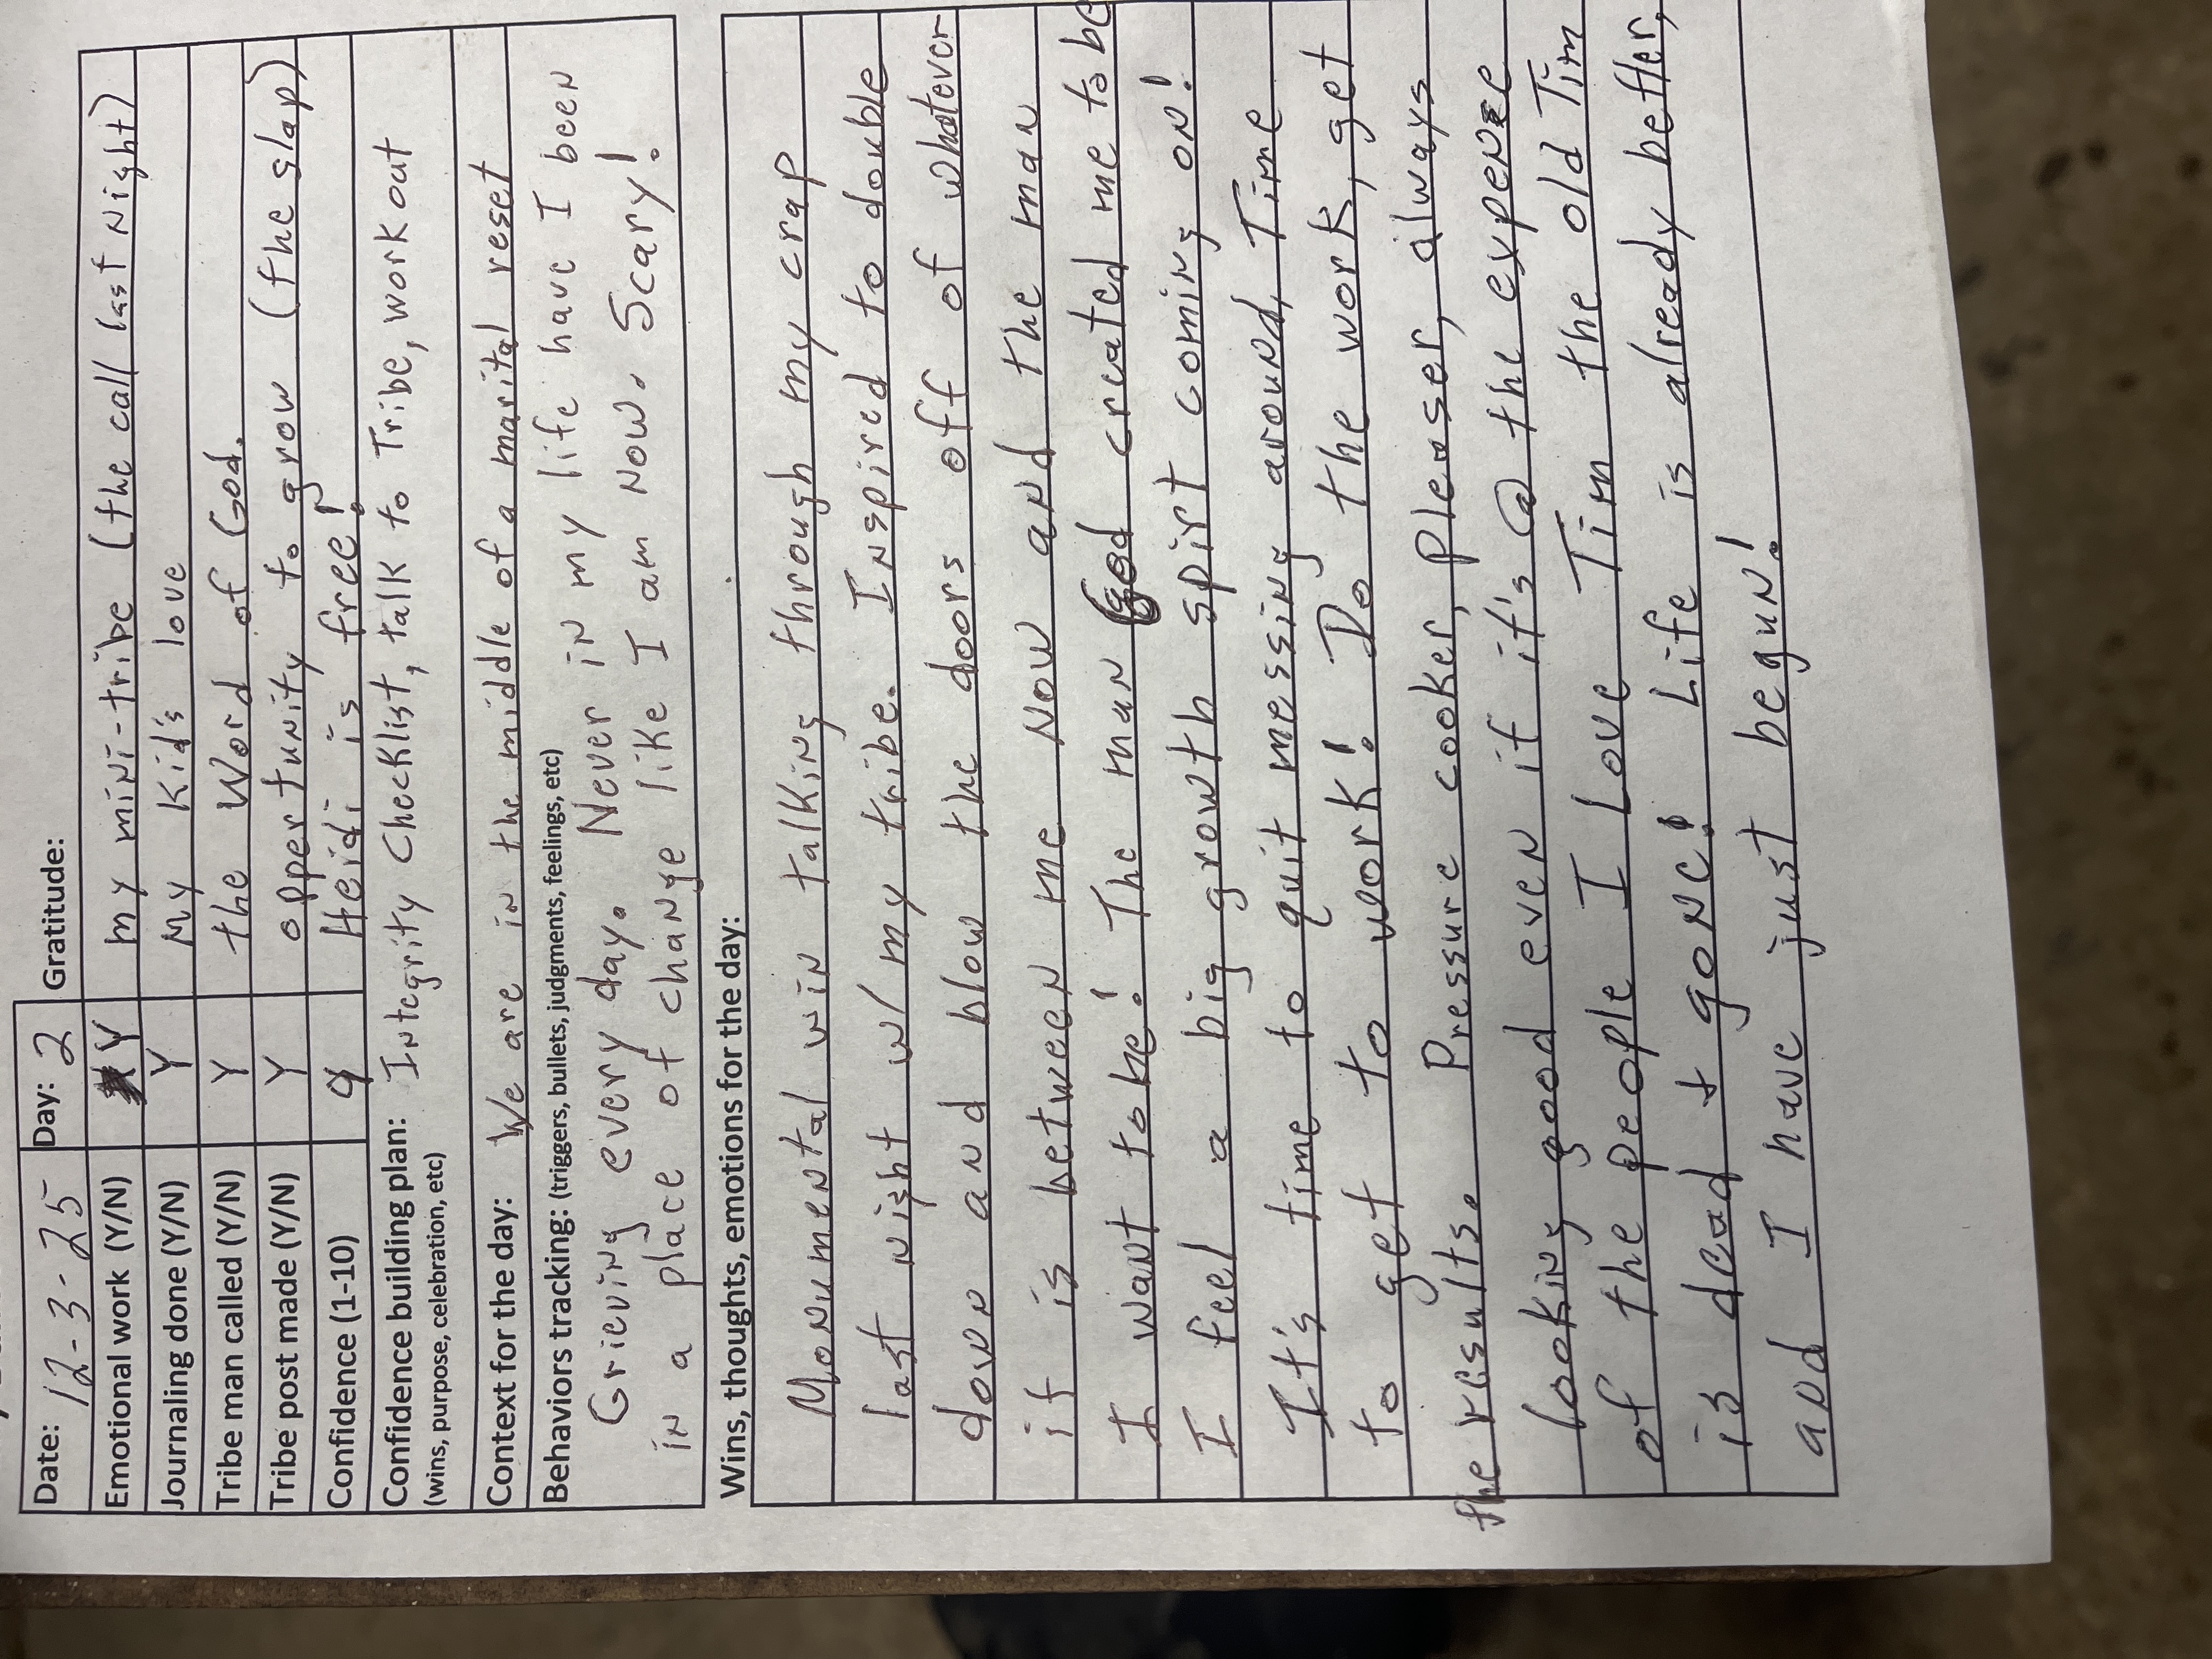 Date: 12-3-25 Day: 2 Gratitude:
Emotional work (Y/N) Y my mini-tribe (the call last night)
Journaling done (Y/N) Y My Kid's love
Tribe man called (Y/N) Y the Word of God.
Tribe post made (Y/N) Y oppertunity to grow (the slap)
Confidence (1-10) 9 Heidi is free!
Confidence building plan: Integrity Checklist, talk to Tribe, work out
(wins, purpose, celebration, etc)
Context for the day: We are in the middle of a marital reset
Behaviors tracking: (triggers, bullets, judgments, feelings, etc)
Grieving every day. Never in my life have I been
in a place of change like I am now. Scary!
Wins, thoughts, emotions for the day:
Monumental win talking through my crap
last night w/ my tribe. Inspired to double
down and blow the doors off of whatever
it is between me now and the man
I want to be! The man God created me to be
I feel a big growth spirt coming on!
It's time to quit messing around, Time
to get to work! Do the work, get
the results. Pressure cooker, pleaser, always
looking good even if it's @ the expense
of the people I Love Tim the old Tim
is dead + gone! Life is already better,
and I have just begun!